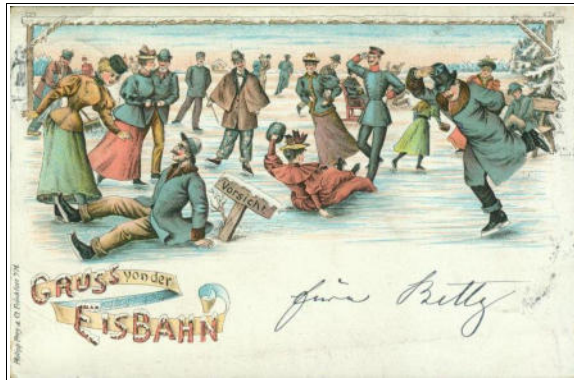 Vorsicht
GRUSS von der
EISBAHN
fürs Betty